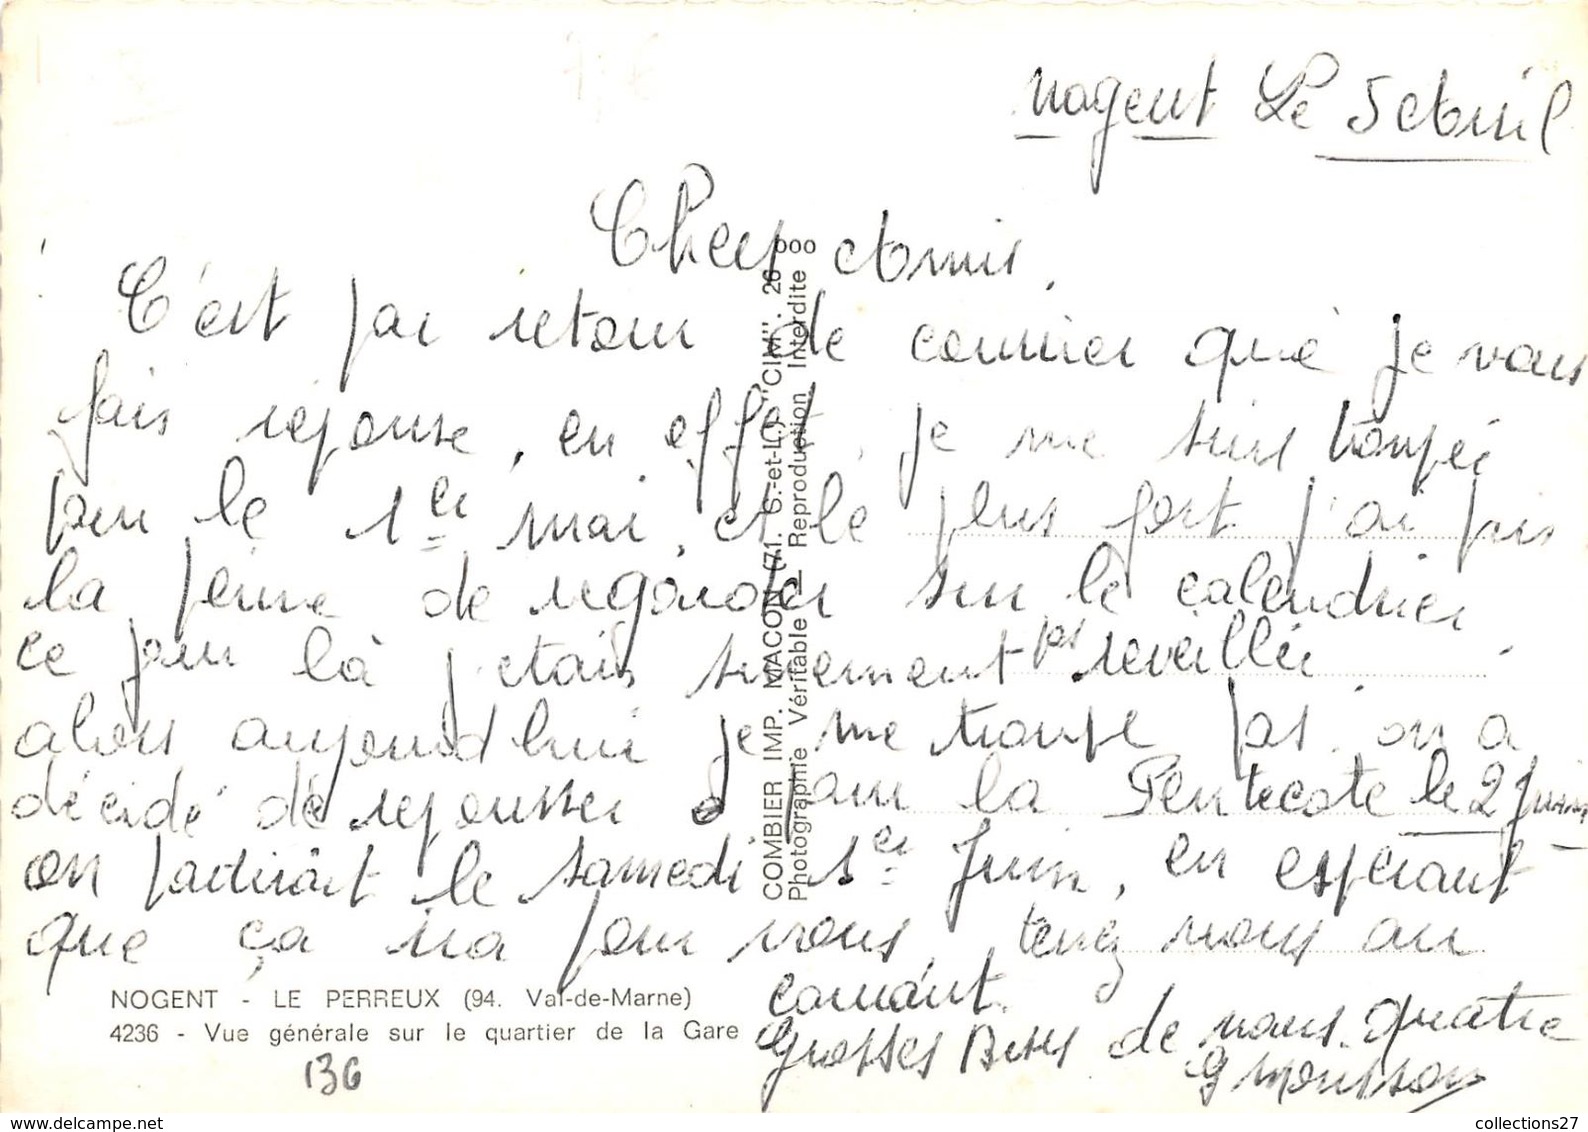 Nogent Le 5 Avril
Chers Amis,
C'est par retour de courrier que je vous
fais réponse, en effet, je me suis trompée
pour le 1er mai, et le plus fort j'ai pris
la peine de regarder sur le calendrier
ce jour là j'étais surement pas réveillée.
alors aujourd'hui je me trompe pas, on a
décidé de repousser pour la Pentecote le 2 Juin
on partirait le samedi 1er Juin, en espérant
que ça ira pour vous, tenez nous au
courant.
Grosses Bises de nous quatre
NOGENT - LE PERREUX (94. Val-de-Marne)
4236 - Vue générale sur le quartier de la Gare
136
COMBIER IMP. MACON (71. S.-et-L.) "CIM". 26 ooo
Photographie Véritable - Reproduction Interdite
collections27